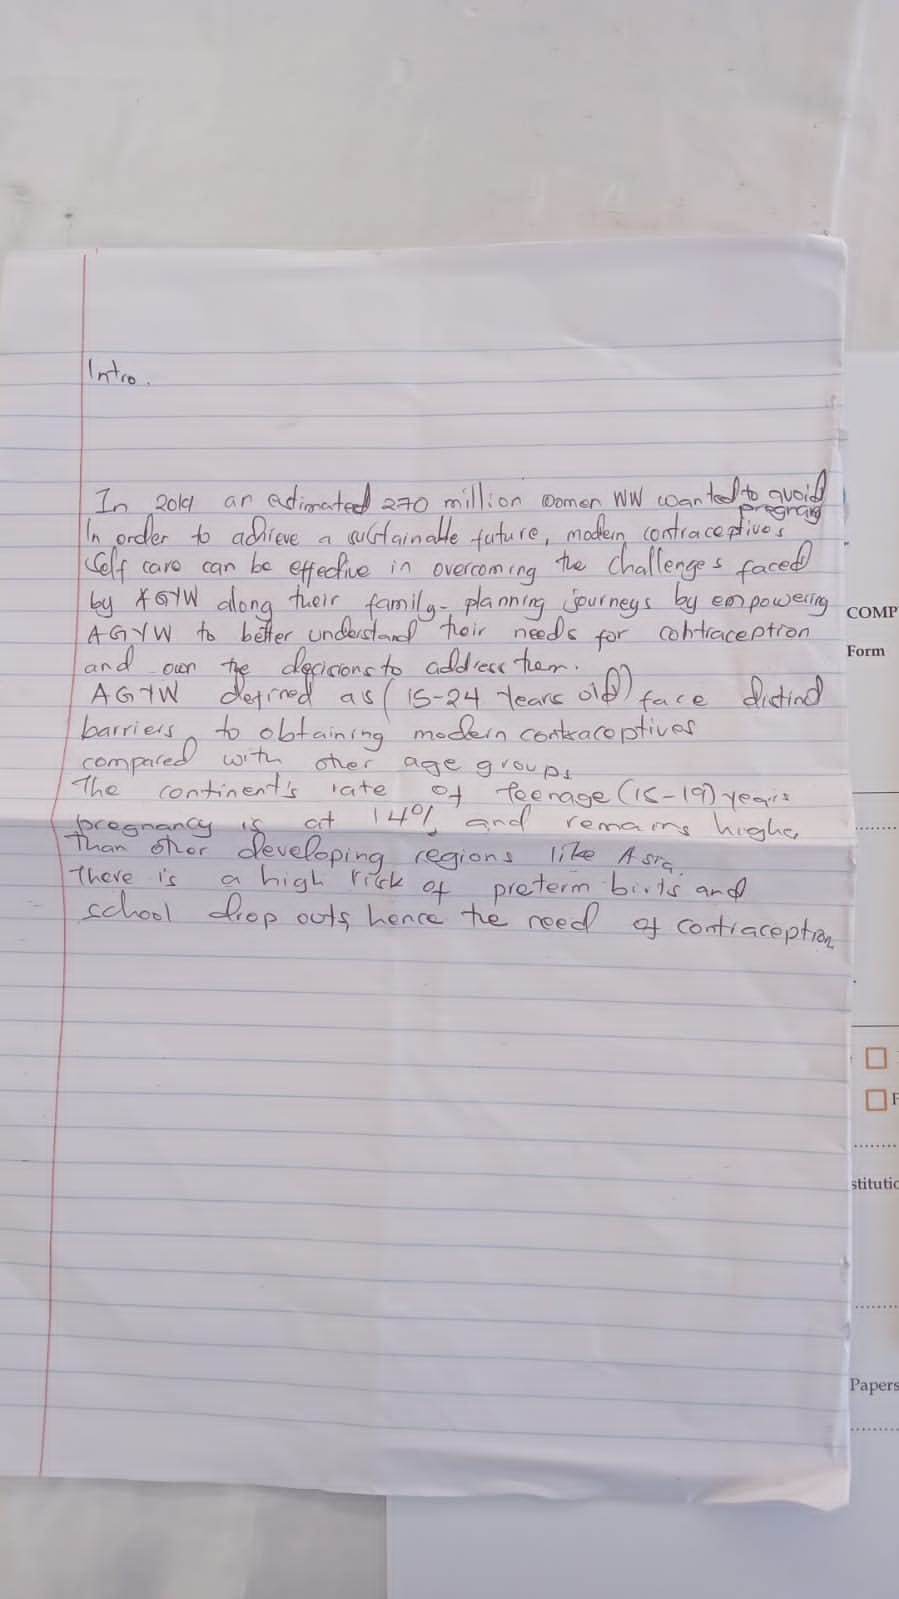 Intro.
In 2019 an estimated 270 million women WW wanted to avoid
pregnancy
In order to achieve a sustainable future, modern contraceptives
Self care can be effective in overcoming the challenges faced
by AGYW along their family-planning journeys by empowering
AGYW to better understand their needs for contraception
and own the decisions to address them.
AGYW defined as (15-24 years old) face distinct
barriers to obtaining modern contraceptives
compared with other age groups
The continent's rate of teenage (15-19) years
pregnancy is at 14% and remains higher
than other developing regions like Asia.
There is a high risk of preterm births and
school drop outs, hence the need of contraception
COMP
Form
stitutic
Papers